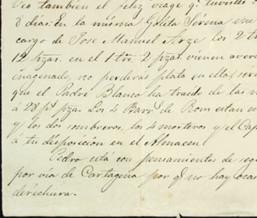 Veo tambien el feliz viage q.e tuvistes
8 dias. En la misma Goleta Sirena
cargo de Jose Manuel Arze los 2
12 pzas. en el 1 tro. 2 pzas vienen
enagenado, no perdiras plata en ellas
que el Padre Blanco ha traido de las
á 28 ps pza. Los 4 Barrs de Rom estan
y los dos sombreros, los 4 morteros y el
á tu disposicion en el Almacen
Pedro está con pensamientos de
por via de Cartagena por q.e no hay
derechura.